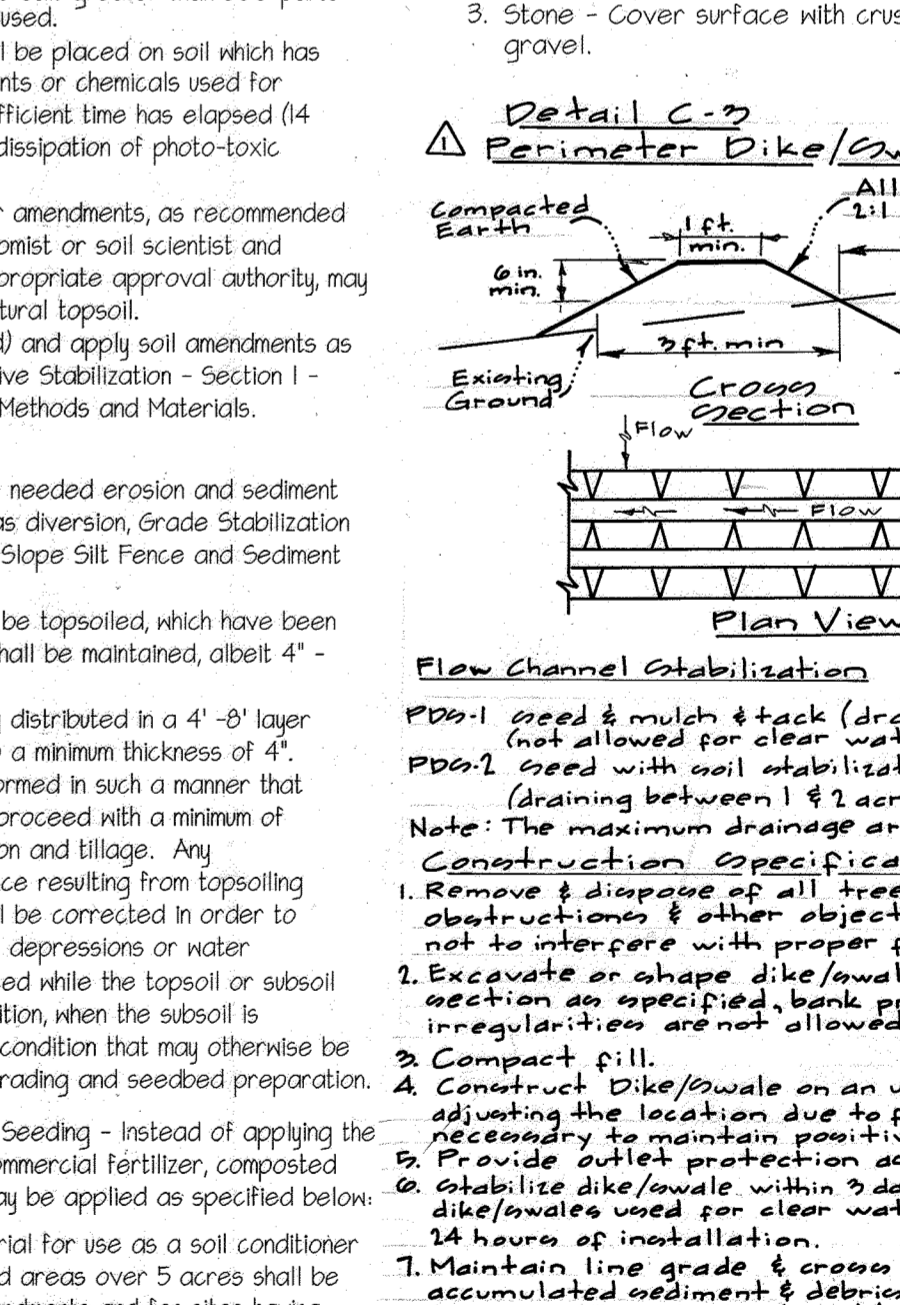 used.
l be placed on soil which has
nts or chemicals used for
fficient time has elapsed (14
dissipation of photo-toxic
r amendments, as recommended
omist or soil scientist and
propriate approval authority, may
tural topsoil.
d) and apply soil amendments as
ive Stabilization - Section I -
Methods and Materials.
needed erosion and sediment
as diversion, Grade Stabilization
Slope Silt Fence and Sediment
be topsoiled, which have been
hall be maintained, albeit 4" -
distributed in a 4' -8' layer
a minimum thickness of 4".
ormed in such a manner that
proceed with a minimum of
on and tillage. Any
ce resulting from topsoiling
l be corrected in order to
depressions or water
ed while the topsoil or subsoil
ition, when the subsoil is
condition that may otherwise be
rading and seedbed preparation.
Seeding - Instead of applying the
ommercial fertilizer, composted
ay be applied as specified below:
rial for use as a soil conditioner
d areas over 5 acres shall be
3. Stone - Cover surface with crus
gravel.
Detail C-3
1 Perimeter Dike/Sw
Compacted
Earth
1 ft.
min.
All
2:1
6 in.
min.
3 ft. min
Existing
Ground
Cross
Section
Flow
Flow
Plan View
Flow Channel Stabilization
PDS-1 Seed & mulch & tack (dra
(not allowed for clear wat
PDS-2 Seed with soil stabilizat
(draining between 1 & 2 acr
Note: The maximum drainage ar
Construction Specifica
1. Remove & dispose of all tree
obstructions & other object
not to interfere with proper f
2. Excavate or shape dike/swal
section as specified, bank pr
irregularities are not allowed
3. Compact fill.
4. Construct Dike/Swale on an u
adjusting the location due to f
necessary to maintain positiv
5. Provide outlet protection as
6. Stabilize dike/swale within 3 da
dike/swales used for clear wat
24 hours of installation.
7. Maintain line grade & cross
accumulated sediment & debris